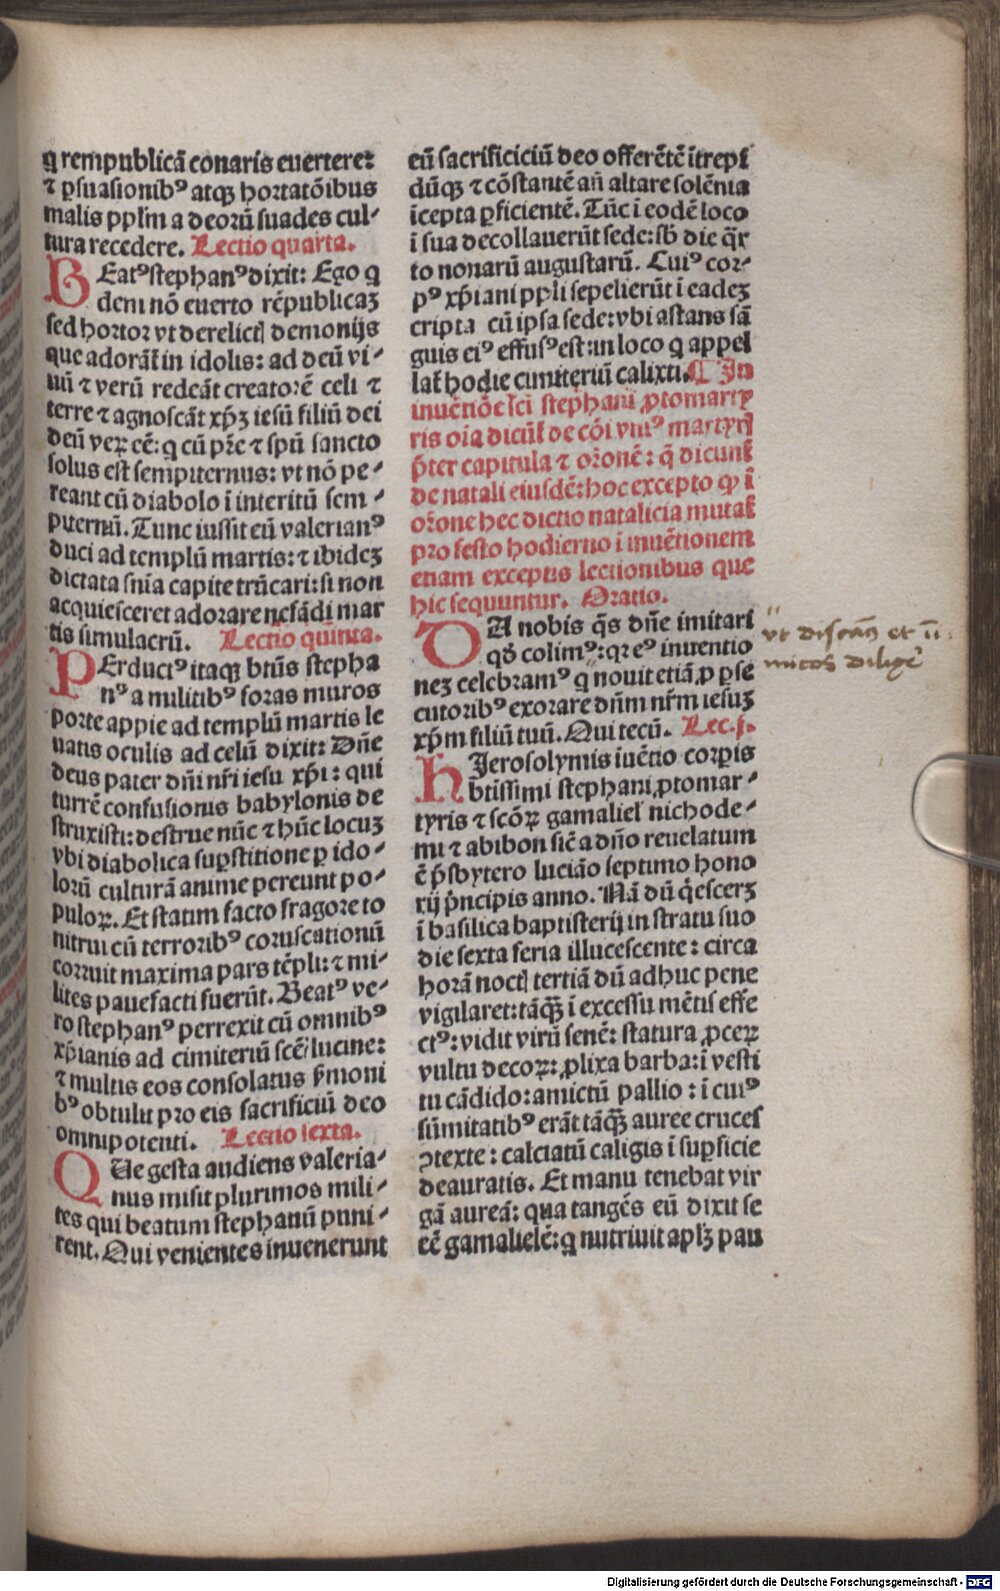 q rempublicā conaris euertere:
⁊ ꝑsuasionibꝰ atqꝫ hortatōibus
malis ppl̄m a deorū suades cul-
tura recedere. Lectio quarta.
BEatꝰ stephanꝰ dixit: Ego q
dem nō euerto rēpublicaꝫ
sed hortor vt derelictꝭ demonijs
que adorāt in idolis: ad deū vi-
uū ⁊ verū redeāt creatorē celi ⁊
terre ⁊ agnoscāt xp̄ꝫ iesū filiū dei
deū veꝝ cē: q cū pr̄e ⁊ spū sancto
solus est sempiternus: vt nō pe-
reant cū diabolo ī interitū sem-
piternū. Tunc iussit eū valerianꝰ
duci ad templū martis: ⁊ ibideꝫ
dictata sn̄ia capite trūcari: si non
acquiesceret adorare nefādi mar
tis simulacrū. Lectio quinta.
PErductꝰ itaqꝫ btūs stepha
nꝰ a militibꝰ foras muros
porte appie ad templū martis le
uatis oculis ad celū dixit: Dn̄e
deus pater dn̄i nr̄i iesu xp̄i: qui
turrē confusionis babylonis de
struxisti: destrue nūc ⁊ hūc locuꝫ
vbi diabolica suꝑstitione ꝑ ido-
lorū culturā anime pereunt po-
puloꝝ. Et statim facto fragore to
nitrui cū terroribꝰ coruscationū
corruit maxima pars tēpli: ⁊ mi-
lites pauefacti fuerūt. Beatꝰ ve-
ro stephanꝰ perrexit cū omnibꝰ
xp̄ianis ad cimiteriū scē lucine:
⁊ multis eos consolatus s̄moni
bꝰ obtulit pro eis sacrificiū deo
omnipotenti. Lectio sexta.
QUe gesta audiens valeria-
nus misit plurimos mili-
tes qui beatum stephanū puni-
rent. Qui venientes inuenerunt
eū sacrificiciū deo offerētē ītrepi
dūqꝫ ⁊ cōstantē an̄ altare solēnia
īcepta ꝑficientē. Tūc ī eodē loco
ī sua decollauerūt sede: sb̄ die q̄r
to nonarū augustarū. Cuiꝰ cor-
pꝰ xp̄iani ppl̄i sepelierūt ī eadeꝫ
cripta cū ipsa sede: vbi astans sā
guis eiꝰ effusꝰ est: in loco q appel
lat̄ hodie cimiteriū calixti. ¶ In
inuētiōe sc̄i stephani ꝓtomarty
ris oīa dicūt̄ de cōi vniꝰ martyrꝭ
p̄ter capitula ⁊ or̄onē: q̄ dicunt̄
de natali eiusdē: hoc excepto ꝙ ī
or̄one hec dictio natalicia mutat̄
pro festo hodierno ī inuētionem
etiam exceptis lectionibus que
hic sequuntur. Oratio.
DA nobis q̄s dn̄e imitari
qd̄ colimꝰ: qr eꝰ inuentio
neꝫ celebramꝰ q nouit etiā ꝓ ꝑse
cutoribꝰ exorare dn̄m nr̄m iesuꝫ
xp̄m filiū tuū. Qui tecū. Lec. j.
HIerosolymis iuētio corꝑis
btīssimi stephani ꝓtomar-
tyris ⁊ scōꝝ gamaliel nichode-
mi ⁊ abibon sic̄ a dn̄o reuelatum
ē p̄sbytero luciāo septimo hono
rij p̄ncipis anno. Nā dū q̄escerꝫ
ī basilica baptisterij in stratu suo
die sexta feria illucescente: circa
horā noctꝭ tertiā dū adhuc pene
vigilaret: tāqꝫ̄ ī excessu mētis effe
ctꝰ: vidit virū senē: statura ꝓceꝝ
vultu decoꝝ: ꝓlixa barba: ī vesti
tu cādido: amictū pallio: ī cuiꝰ
sūmitatibꝰ erāt tāqꝫ̄ auree cruces
ↄtexte: calciatū caligis ī suꝑficie
deauratis. Et manu tenebat vir
gā aureā: qua tangēs eū dixit se
eē gamalielē: q nutriuit apl̄ꝫ pau
vt discam⁹ et ini
micos diliger̄
Digitalisierung gefördert durch die Deutsche Forschungsgemeinschaft - DFG